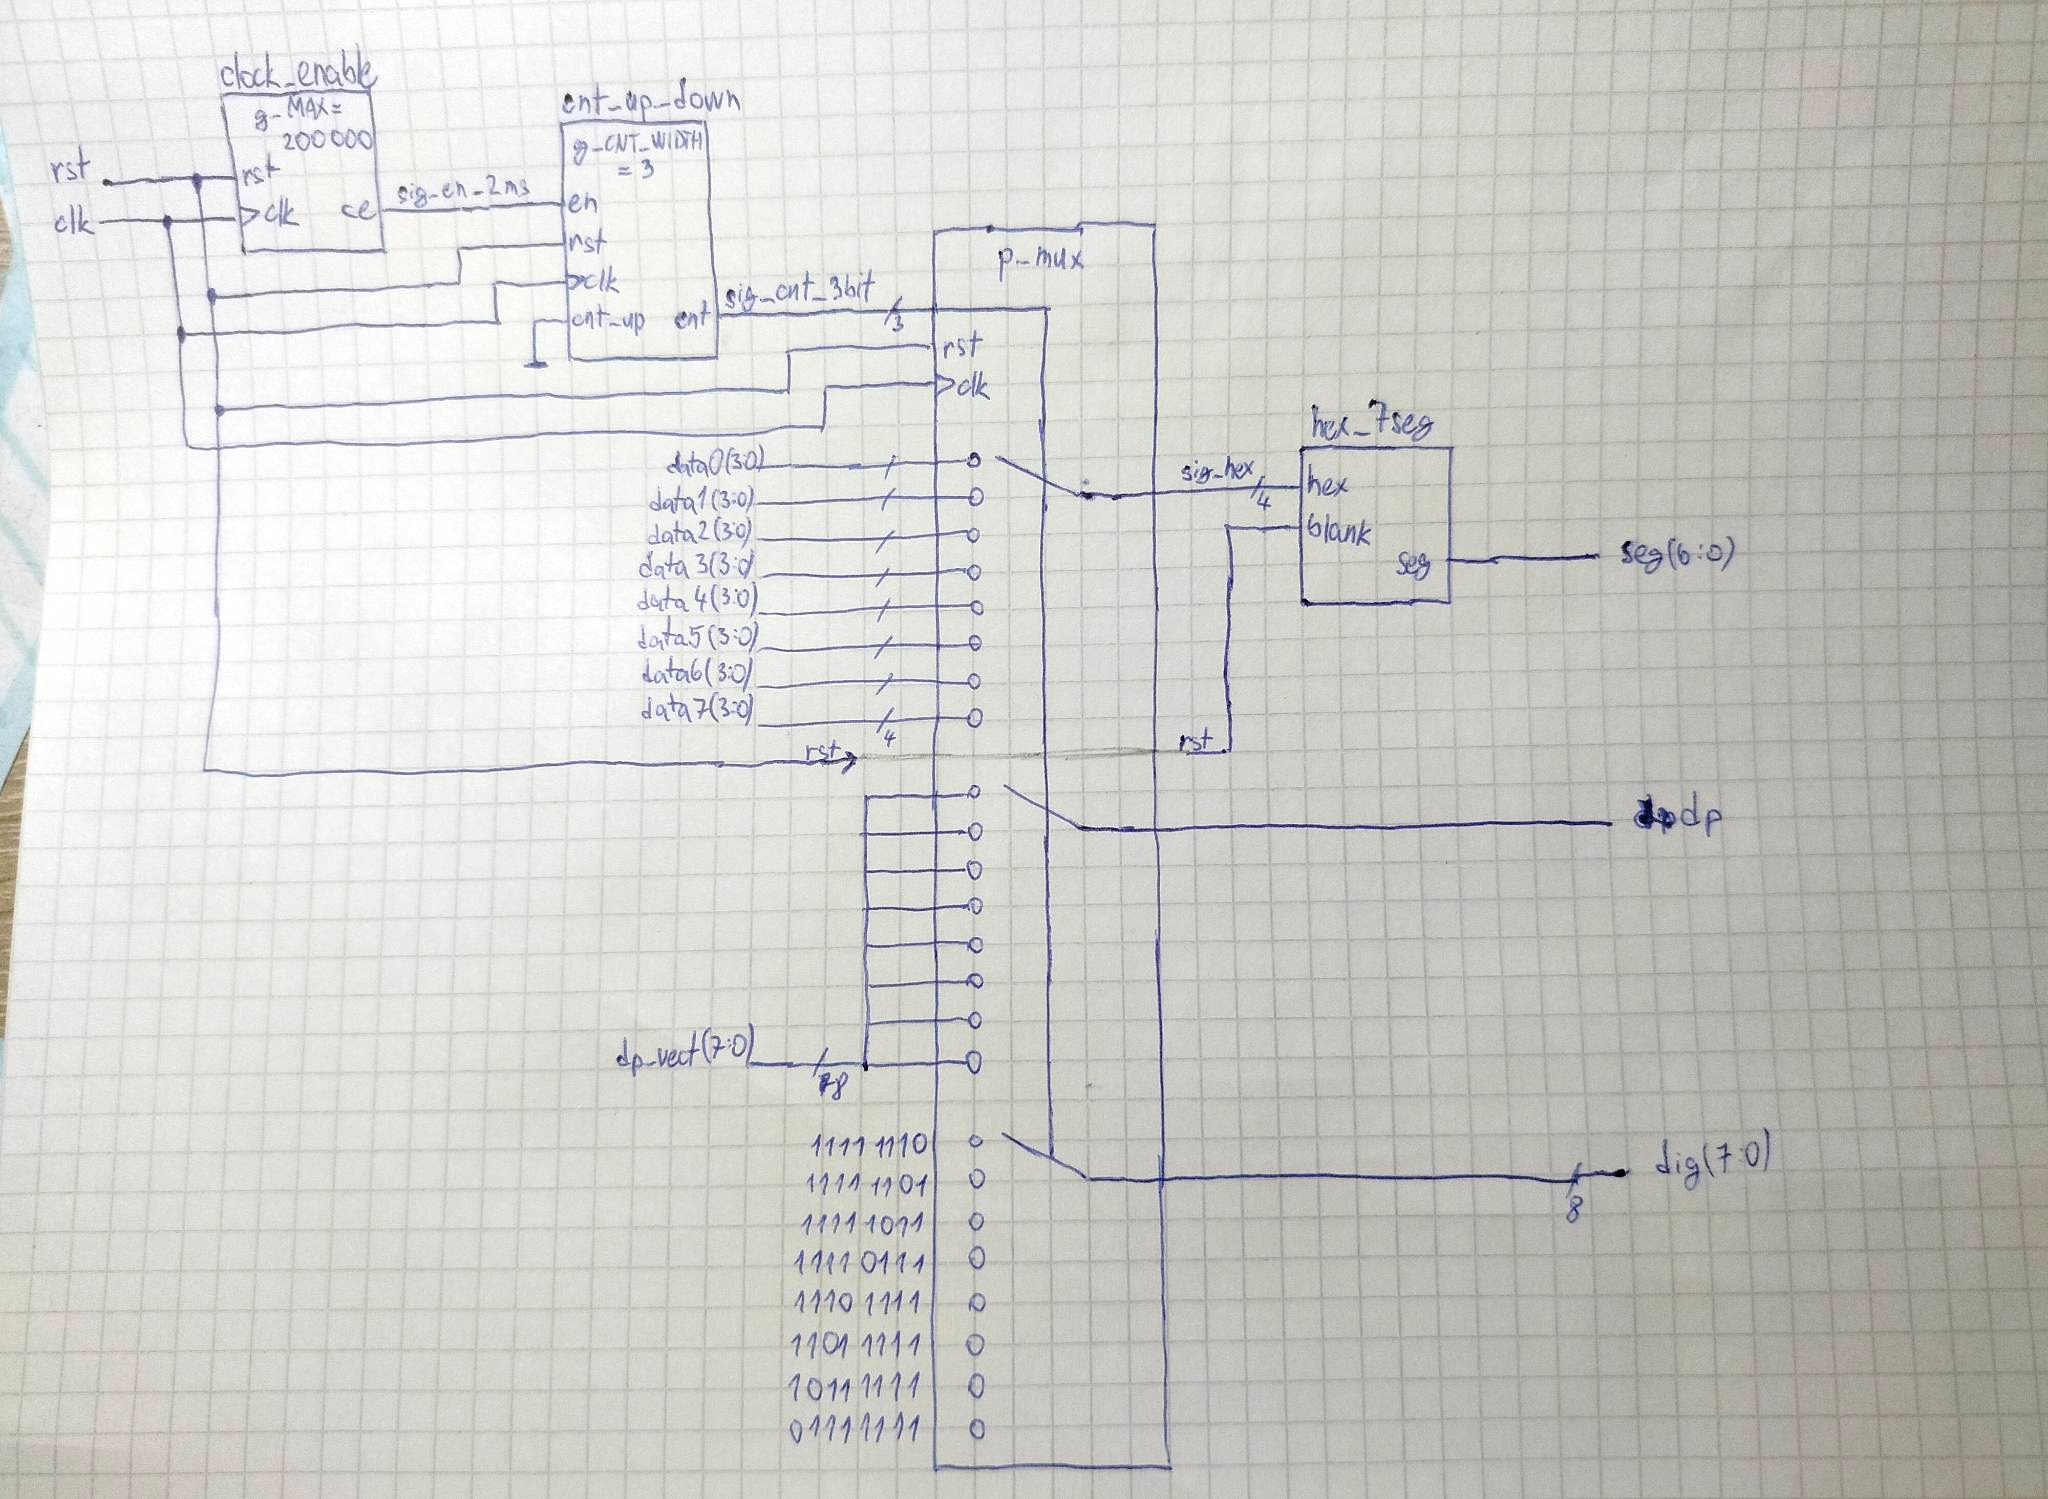 clock_enable
g_MAX=
200000
rst
clk
rst
clk
ce
sig_en_2ms
cnt_up_down
g_CNT_WIDTH
= 3
en
rst
clk
cnt_up
cnt
sig_cnt_3bit
3
p_mux
rst
clk
data0(3:0)
data1(3:0)
data2(3:0)
data3(3:0)
data4(3:0)
data5(3:0)
data6(3:0)
data7(3:0)
4
rst
sig_hex
4
hex_7seg
hex
blank
seg
seg(6:0)
rst
dp
dp_vect(7:0)
8
1111 1110
1111 1101
1111 1011
1111 0111
1110 1111
1101 1111
1011 1111
0111 1111
dig(7:0)
8